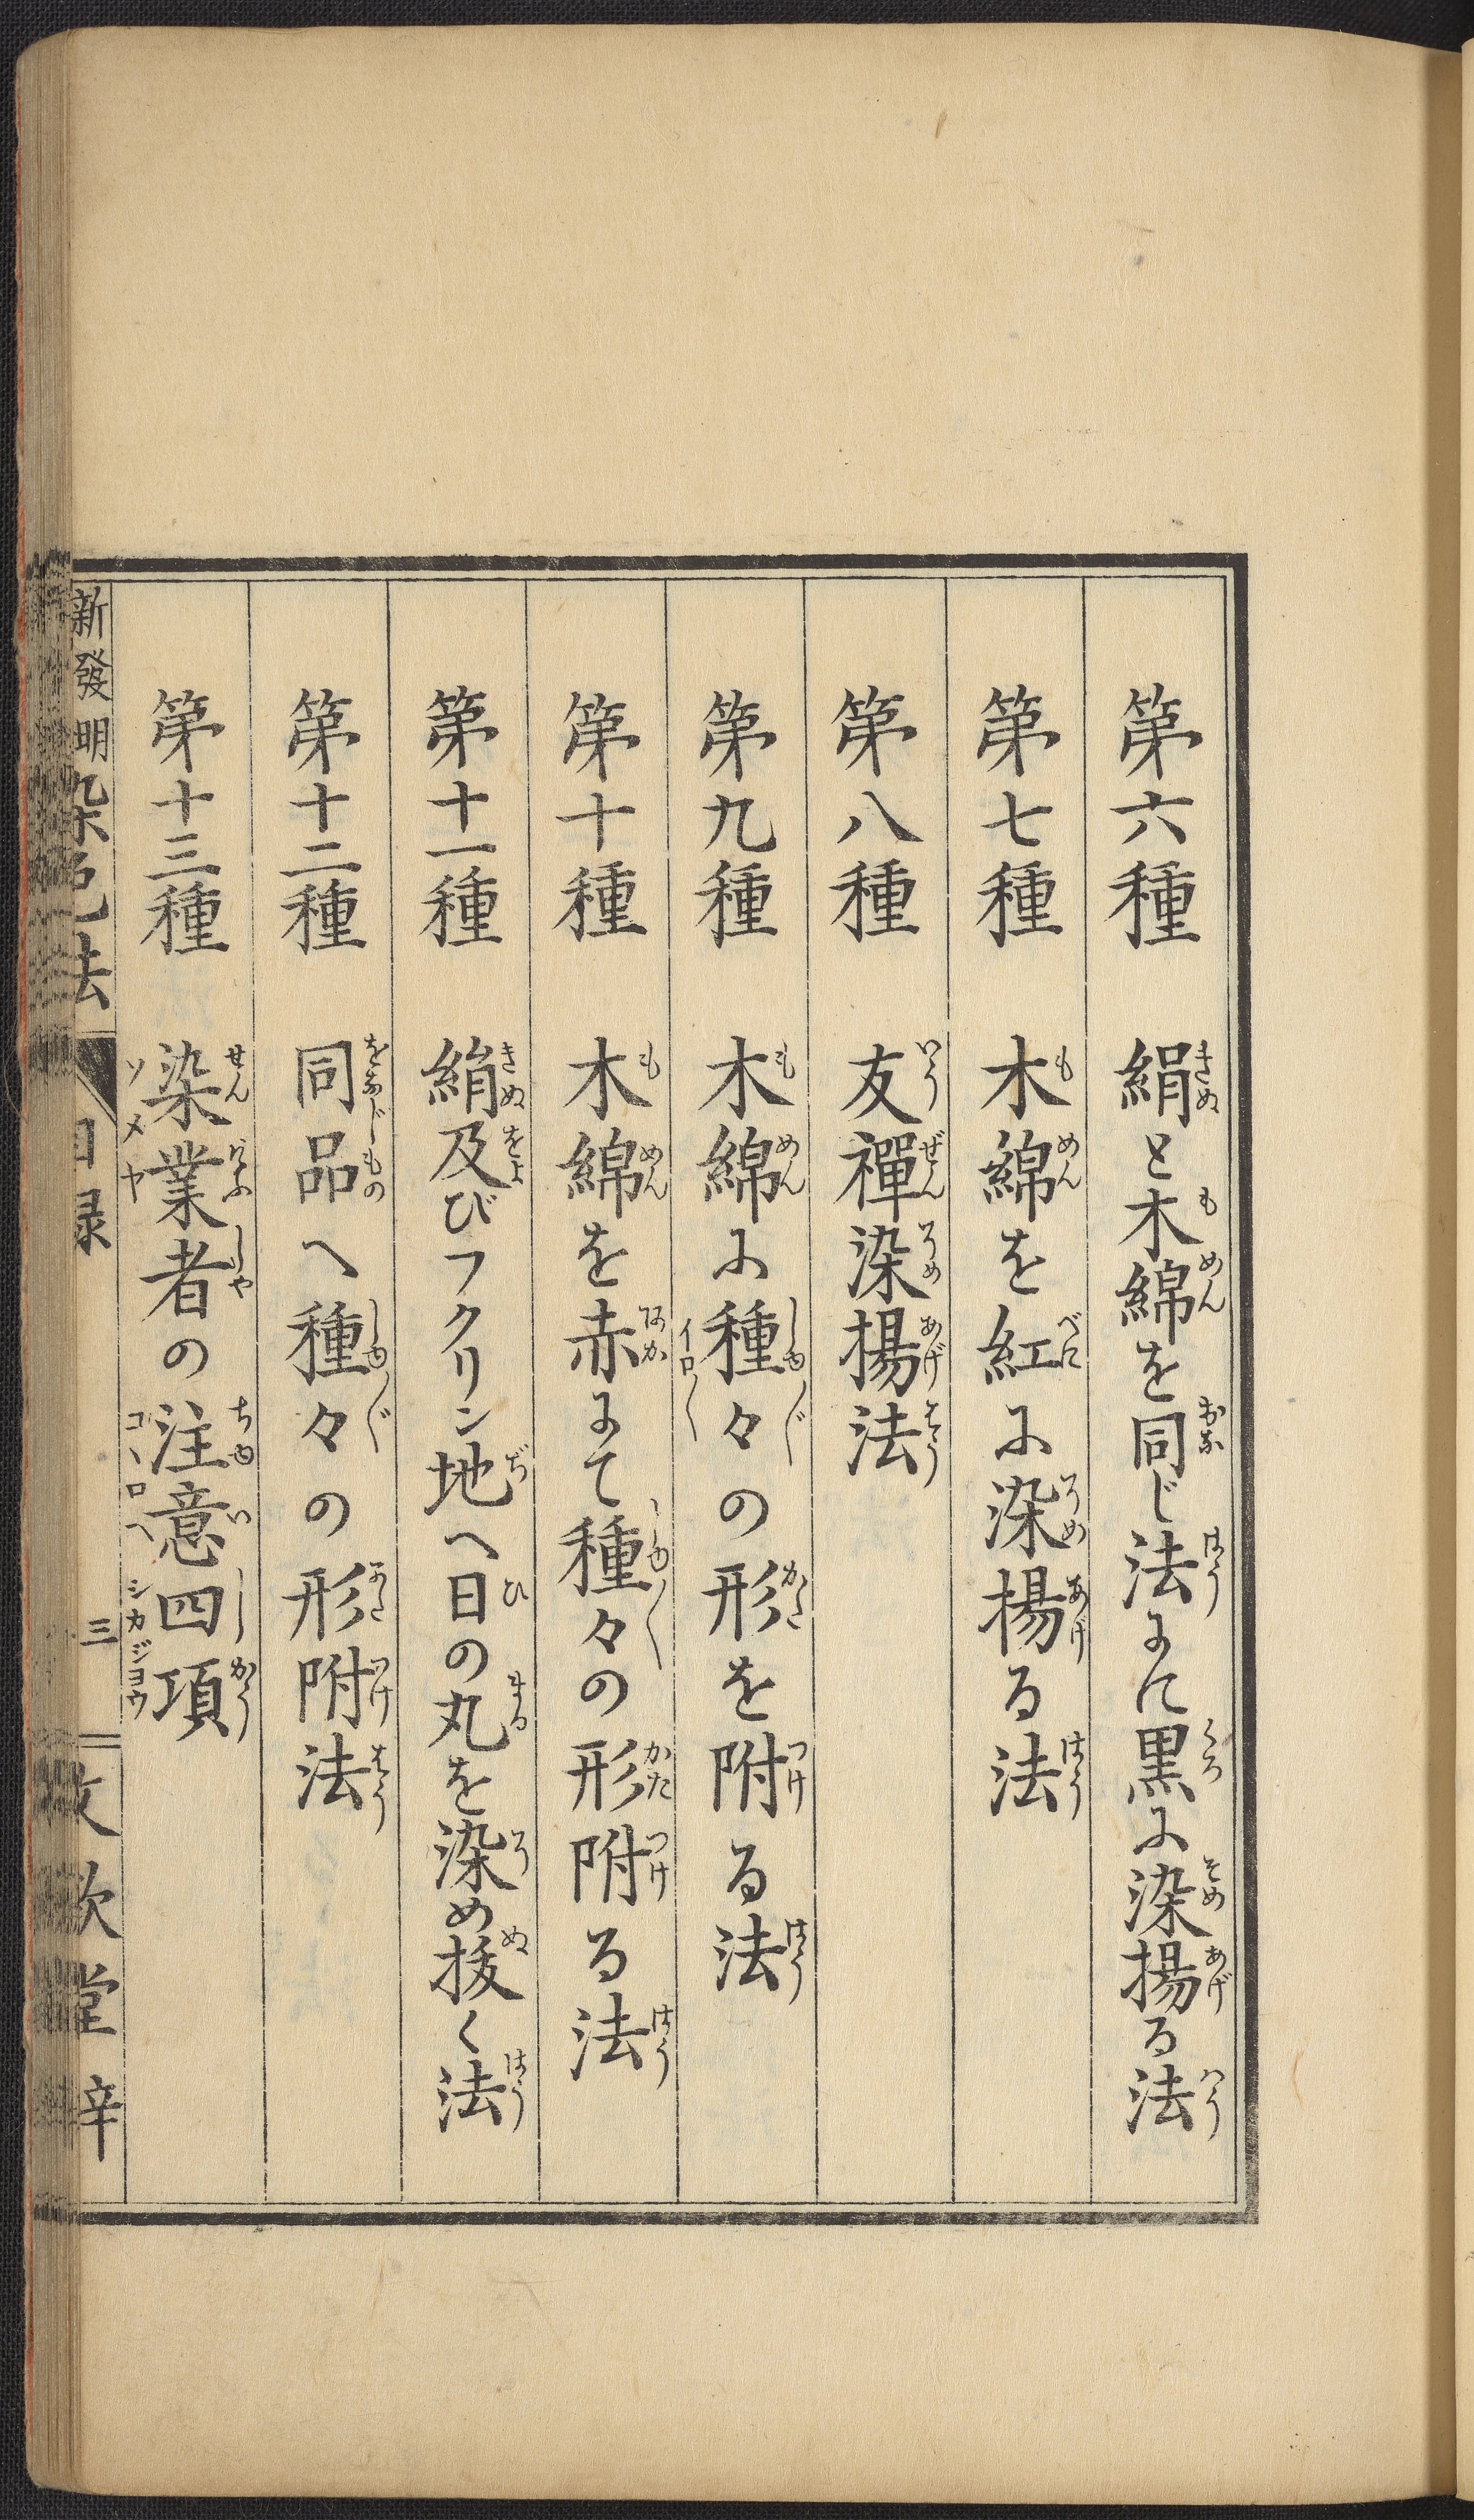 第六種 絹と木綿を同じ法にて黒に染揚る法
第七種 木綿を紅に染揚る法
第八種 友禪染揚法
第九種 木綿に種々の形を附る法
第十種 木綿を赤にて種々の形附る法
第十一種 絹及びフクリン地へ日の丸を染め拔く法
第十二種 同品へ種々の形附法
第十三種 染業者の注意四項
新發明染色法 目録 三